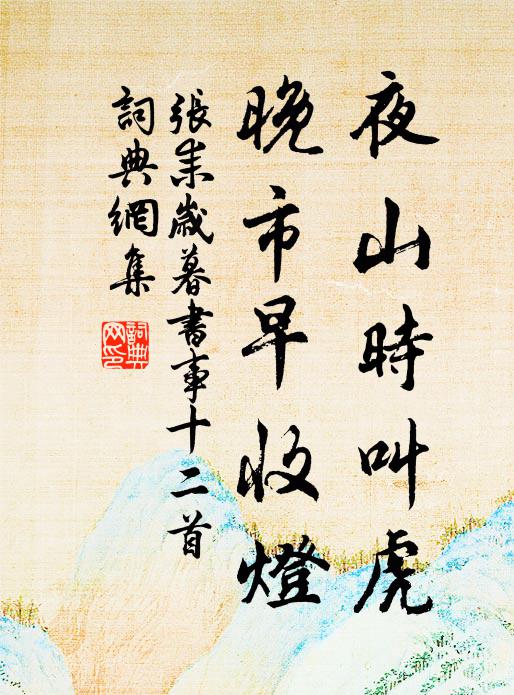 夜山時叫虎
晚市早收燈
張耒歲暮書事十二首
詞典網集
詞典
网印